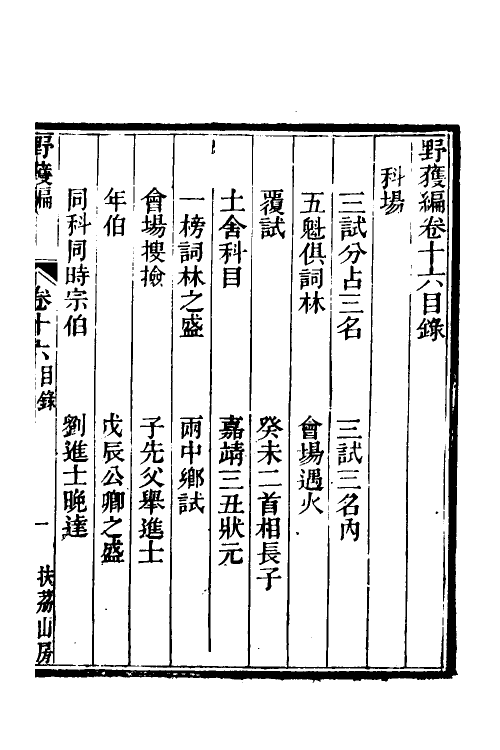 野獲編卷十六目錄
科場
三試分占三名　三試三名內
五魁俱詞林　會場遇火
覆試　癸未二首相長子
土舍科目　嘉靖三丑狀元
一榜詞林之盛　兩中鄉試
會場搜撿　子先父舉進士
年伯　戊辰公卿之盛
同科同時宗伯　劉進士晚達
野獲編　卷十六目錄　一　扶荔山房